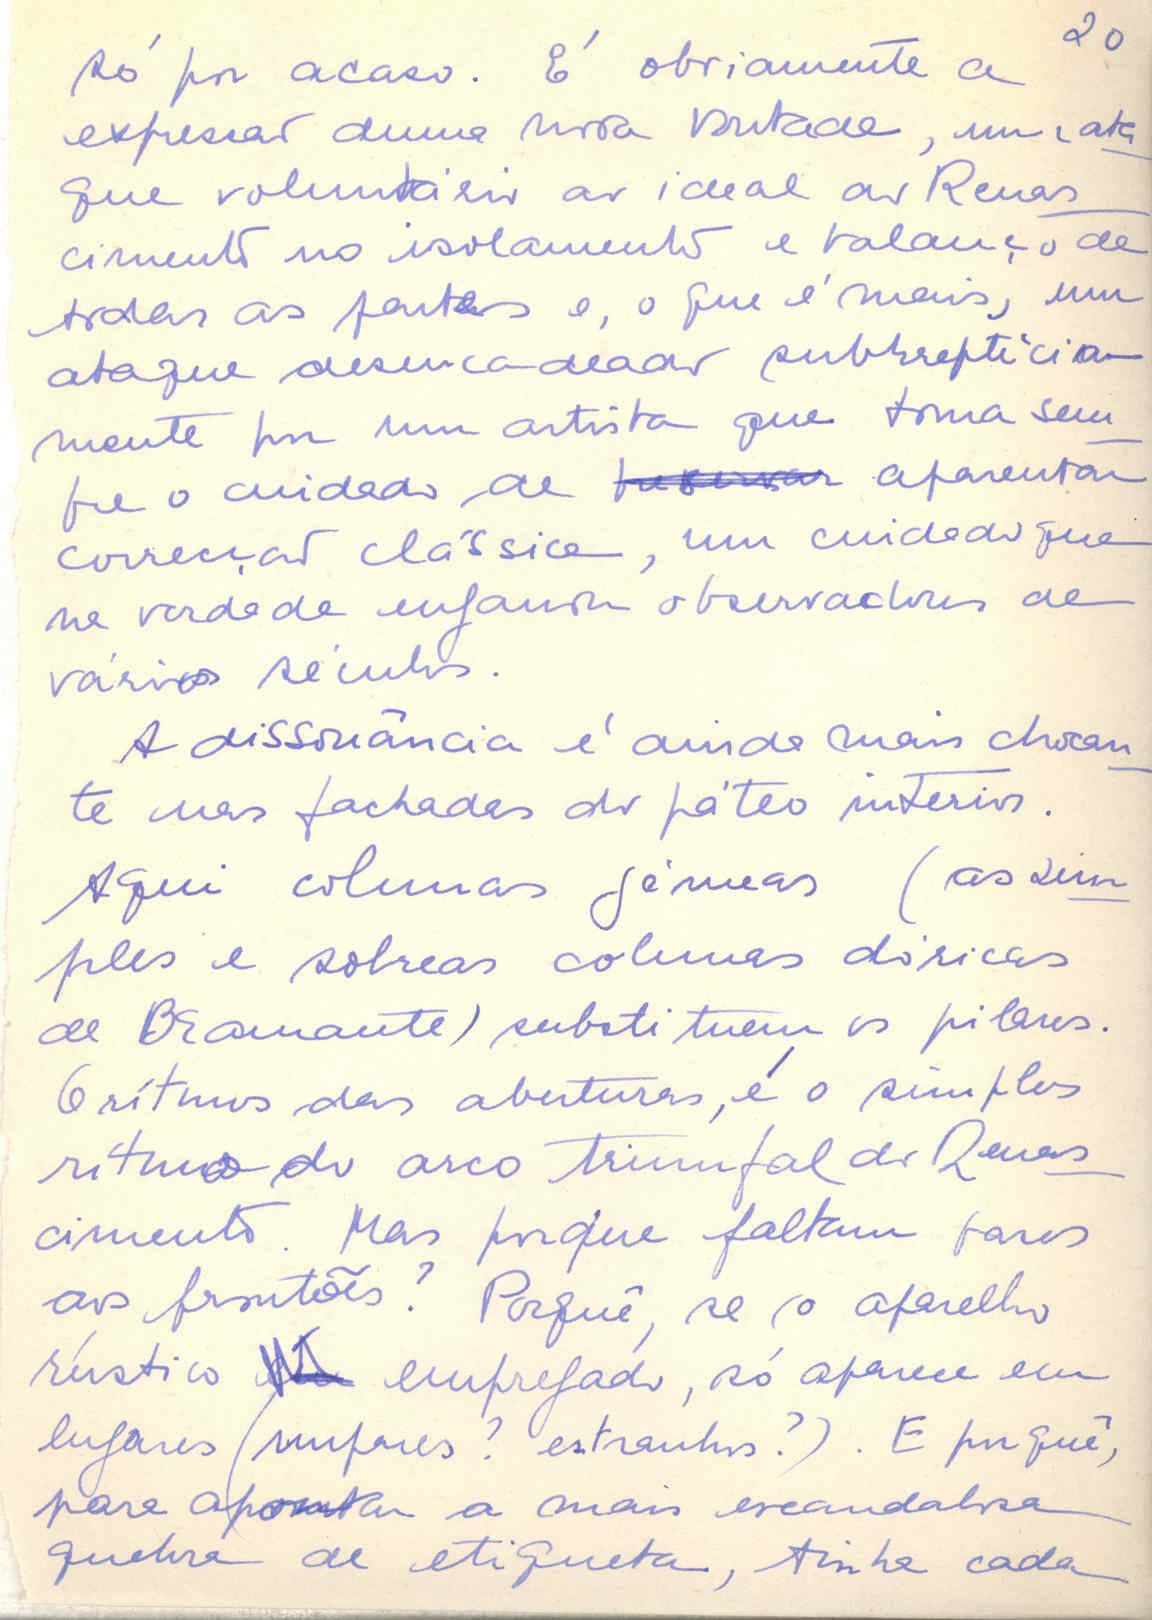 20
só por acaso. É obviamente a
expressão duma nova vontade, um ata
que voluntário ao ideal do Renas
cimento no isolamento e balanço de
todas as partes e, o que é mais, um
ataque desencadeado subrepticia
mente por um artista que toma sem
pre o cuidado de aparentar
correcção clássica, um cuidado que
na verdade enganou observadores de
vários séculos.
A dissonância é ainda mais chocan
te nas fachadas do páteo interior.
Aqui colunas gémeas (as sim
ples e sobreas colunas dóricas
de Bramante) substituem os pilares.
O rítmos das aberturas, é o simples
rítmo do arco triunfal do Renas
cimento. Mas porque faltam bases
aos frontões? Porquê, se o aparelho
rústico empregado, só aparece em
lugares (ímpares? estranhos?). E porquê,
para apontar a mais escandalosa
quebra de etiqueta, tinha cada